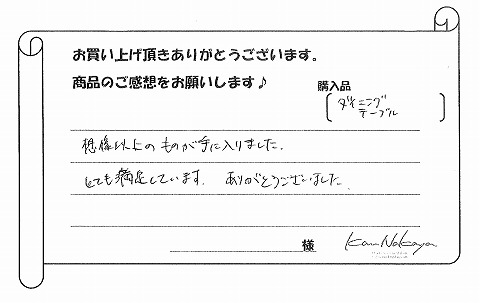 お買い上げ頂きありがとうございます。
商品のご感想をお願いします♪
購入品
ダイニング
テーブル
想像以上のものが手に入りました.
とても満足しています. ありがとうございました
様